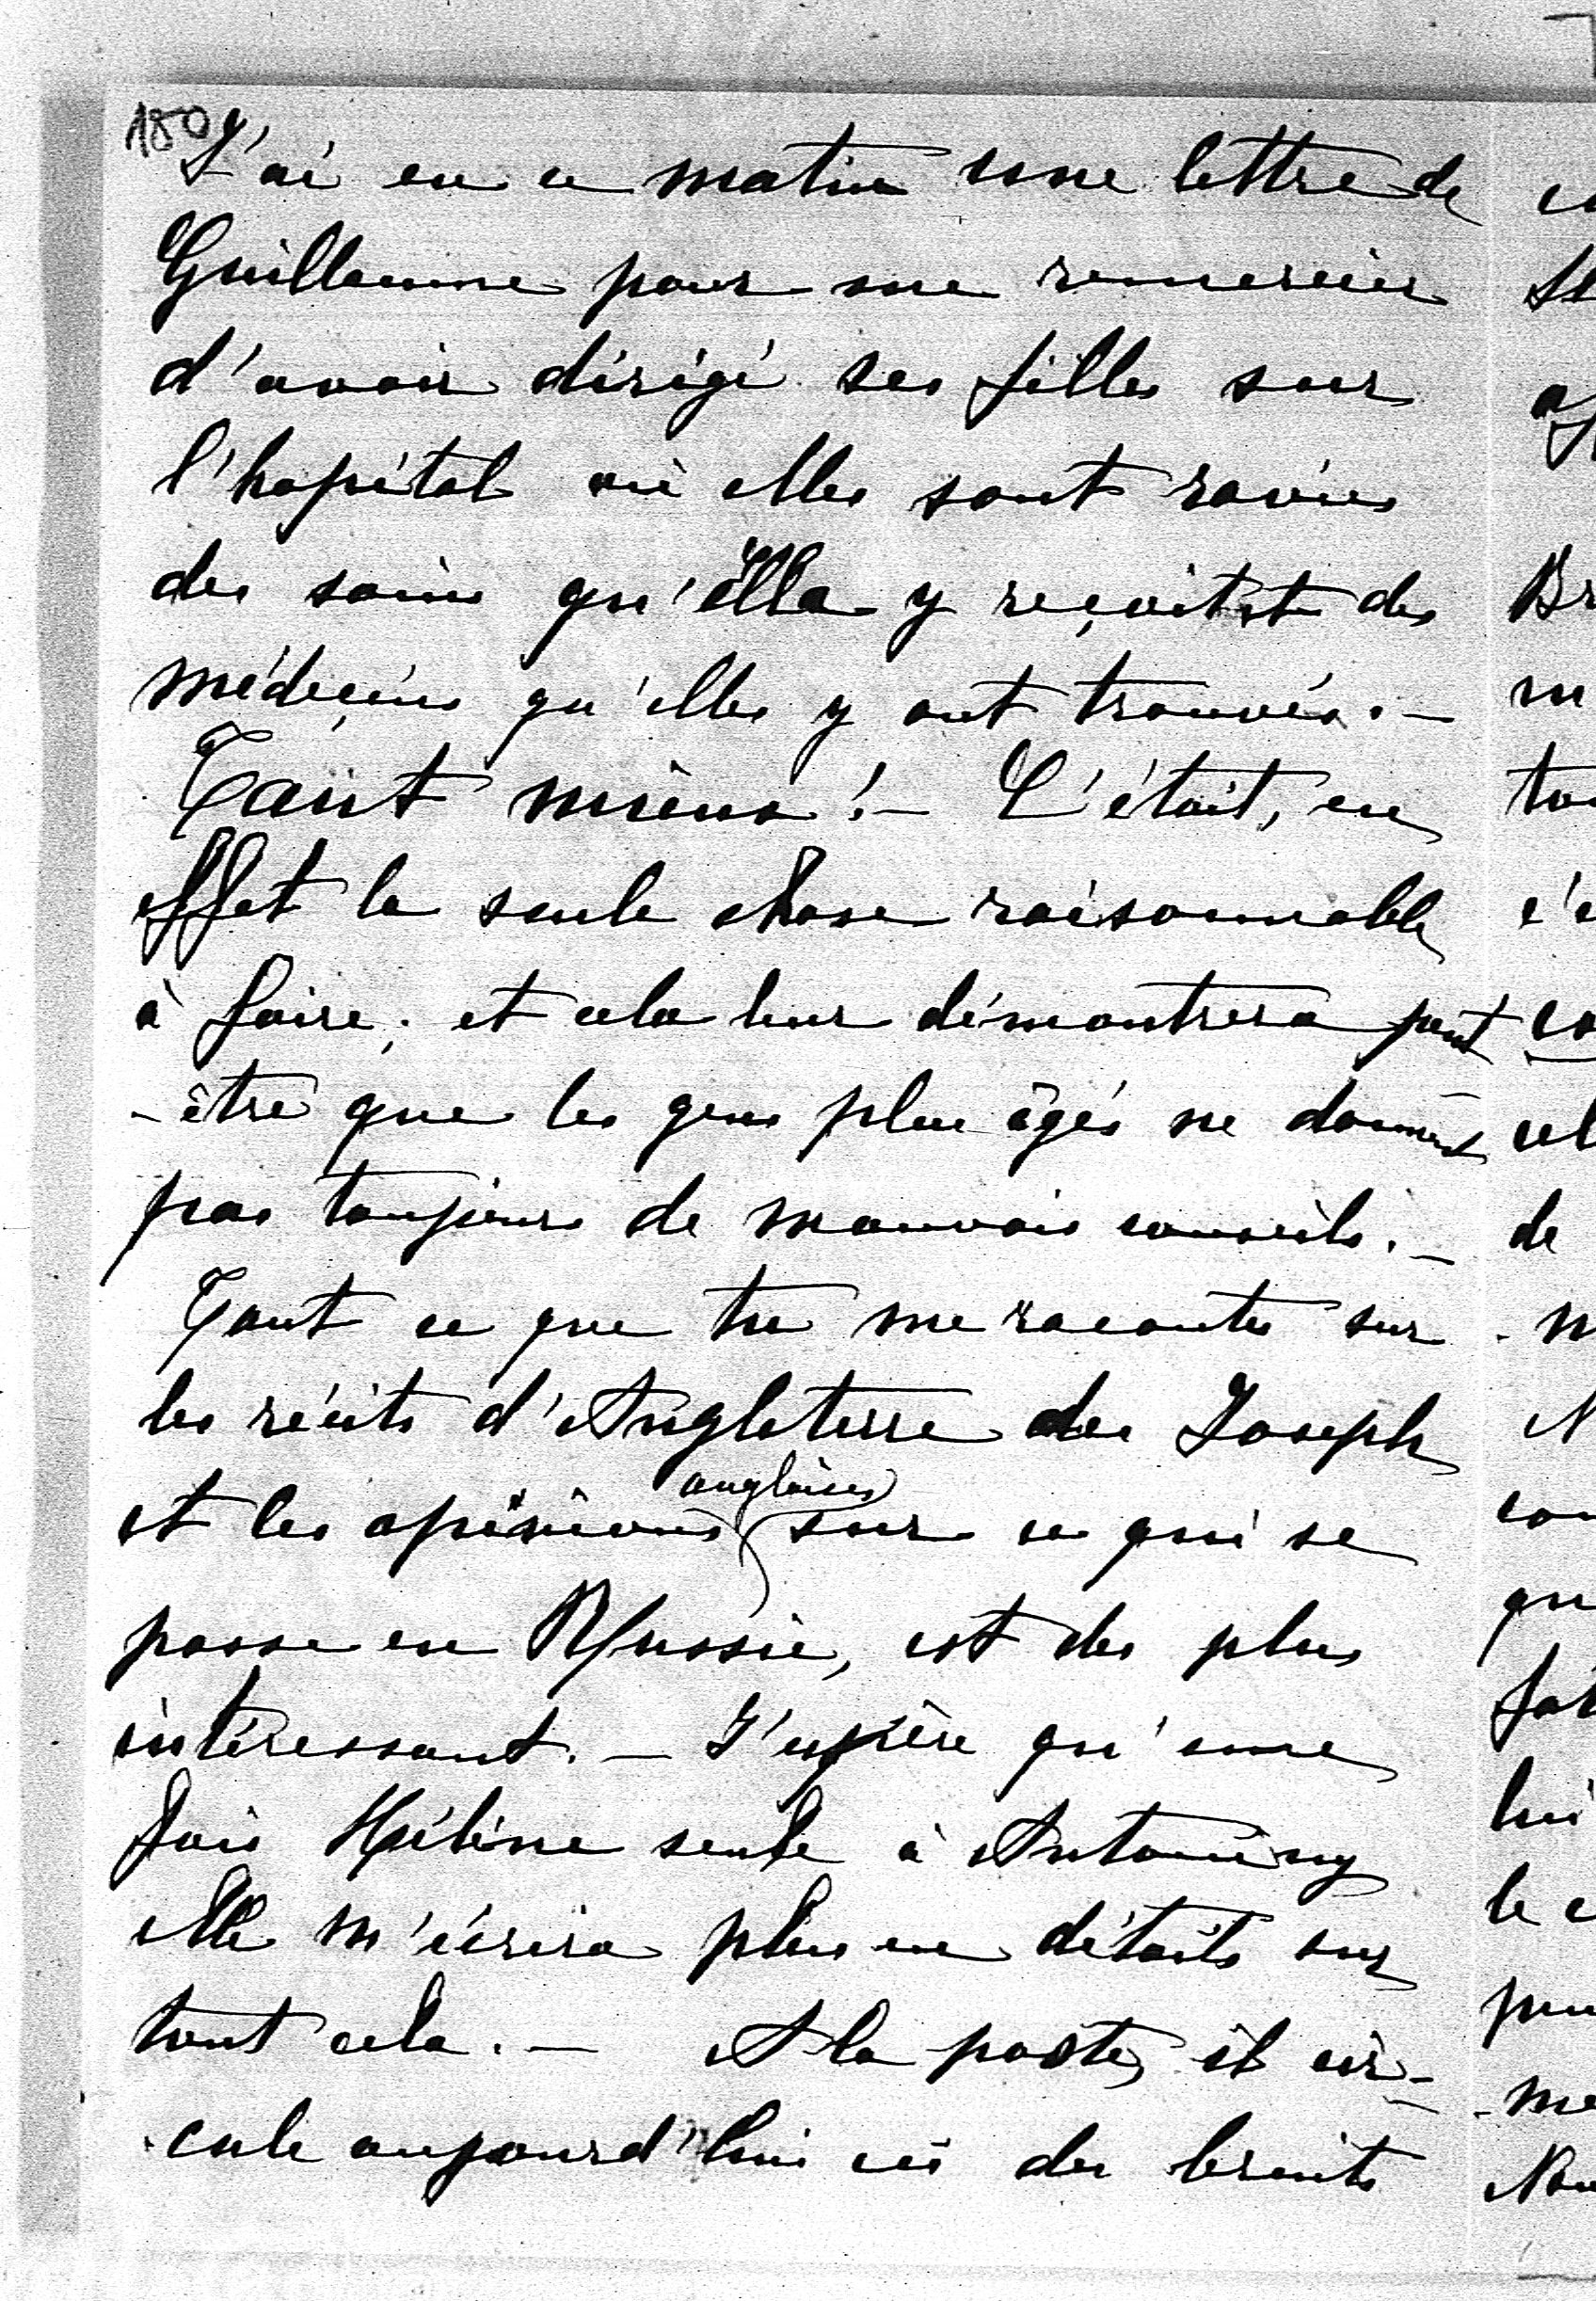 180
J'ai eu ce matin une lettre de
Guillaume pour me remercier
d'avoir dirigé ses filles sur
l'hopital où elles sont ravies
des soins qu'Ella y reçoit et des
médeçins qu'elles y ont trouvés. —
Tant mieux! — C'était, en
effet la seule chose raisonnable
à faire; et cela leur démontrera peut
- être que les gens plus âgés ne donnent
pas toujours de mauvais conseils. —
Tout ce que tu me racontes sur
les récits d'Angleterre des Joseph
et les opinions anglaises sur ce qui se
passe en Russie, est des plus
intéressant. — J'espère qu'une
fois Hélène seule à Antoniny
elle m'écrira plus en détails sur
tout cela. — A la poste, il cir-
cule aujourd'hui ici des bruits